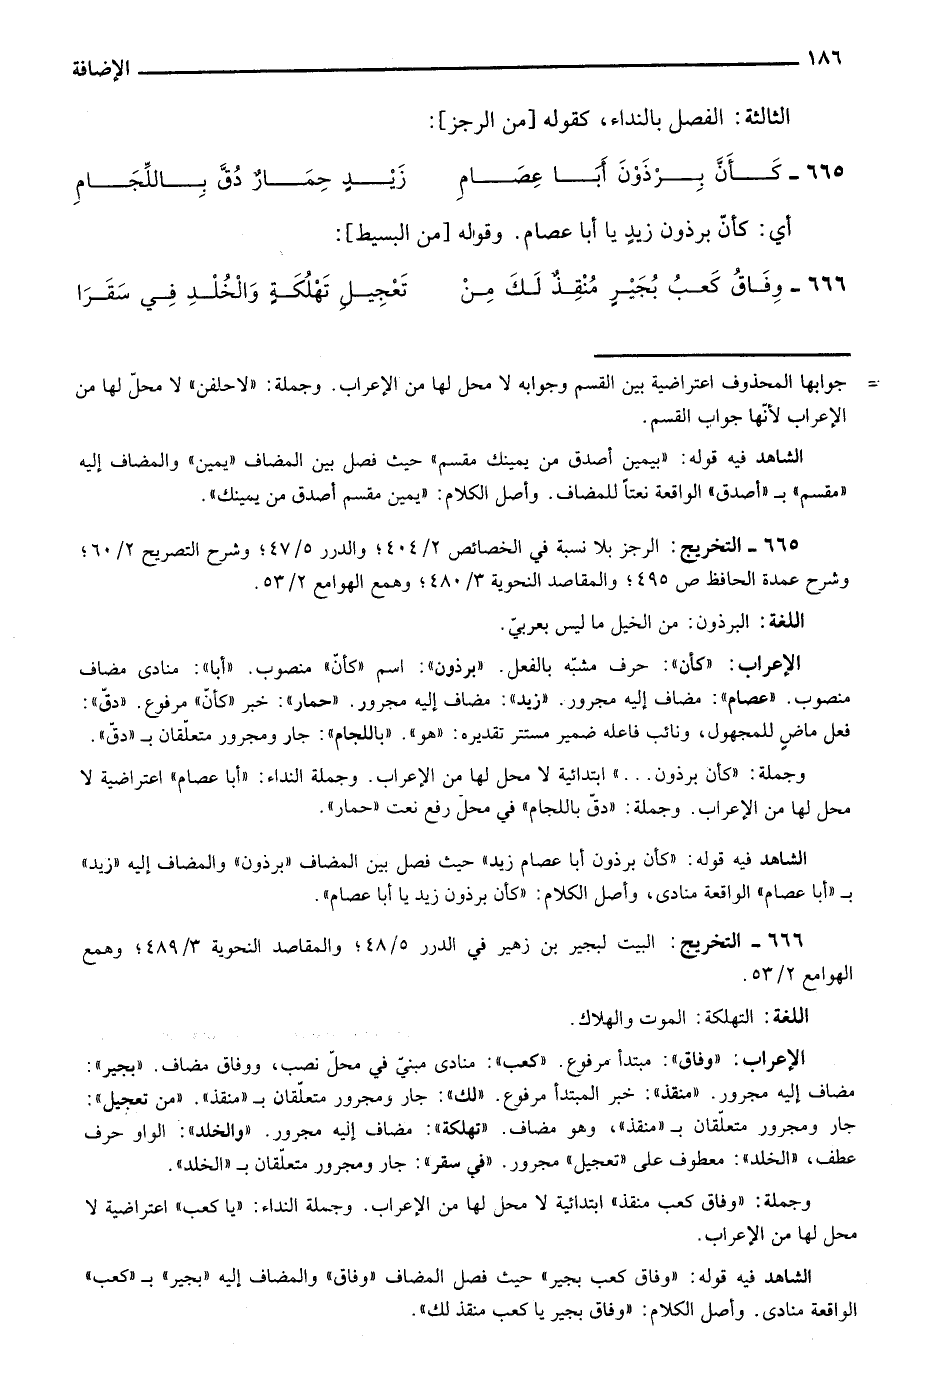 ١٨٦ الإضافة
الثالثة: الفصل بالنداء، كقوله [من الرجز]:
٦٦٥ ـ كَـــأَنَّ بِـــرْذَوْنَ أَبَـــا عِصَـــامِ زَيْـــدٍ حِمَـــارٌ دُقَّ بِـــاللِّجَـــامِ
أي: كأنّ برذون زيدٍ يا أبا عصام. وقوله [من البسيط]:
٦٦٦ ـ وِفَـاقُ كَعبُ بُجَيْـرٍ مُنْقِـذٌ لَـكَ مِـنْ تَعْجِيـلِ تَهْلُكَـةٍ وَالْخُلْـدِ فِـي سَقَـرَا
= جوابها المحذوف اعتراضية بين القسم وجوابه لا محل لها من الإعراب. وجملة: «لاحلفن» لا محلّ لها من
الإعراب لأنّها جواب القسم.
الشاهد فيه قوله: «بيمين أصدق من يمينك مقسم» حيث فصل بين المضاف «يمين» والمضاف إليه
«مقسم» بـ «أصدق» الواقعة نعتاً للمضاف. وأصل الكلام: «يمين مقسم أصدق من يمينك».
٦٦٥ ـ التخريج: الرجز بلا نسبة في الخصائص ٢/ ٤٠٤؛ والدرر ٥/ ٤٧؛ وشرح التصريح ٢/ ٦٠؛
وشرح عمدة الحافظ ص ٤٩٥؛ والمقاصد النحوية ٣/ ٤٨٠؛ وهمع الهوامع ٢/ ٥٣.
اللغة: البرذون: من الخيل ما ليس بعربيّ.
الإعراب: «كأن»: حرف مشبّه بالفعل. «برذون»: اسم «كأنّ» منصوب. «أبا»: منادى مضاف
منصوب. «عصام»: مضاف إليه مجرور. «زيد»: مضاف إليه مجرور. «حمار»: خبر «كأنّ» مرفوع. «دقّ»:
فعل ماضٍ للمجهول، ونائب فاعله ضمير مستتر تقديره: «هو». «باللجام»: جار ومجرور متعلّقان بـ «دقّ».
وجملة: «كأن برذون...» ابتدائية لا محل لها من الإعراب. وجملة النداء: «أبا عصام» اعتراضية لا
محل لها من الإعراب. وجملة: «دقّ باللجام» في محلّ رفع نعت «حمار».
الشاهد فيه قوله: «كأن برذون أبا عصام زيد» حيث فصل بين المضاف «برذون» والمضاف إليه «زيد»
بـ «أبا عصام» الواقعة منادى، وأصل الكلام: «كأن برذون زيد يا أبا عصام».
٦٦٦ ـ التخريج: البيت لبجير بن زهير في الدرر ٥/ ٤٨؛ والمقاصد النحوية ٣/ ٤٨٩؛ وهمع
الهوامع ٢/ ٥٣.
اللغة: التهلكة: الموت والهلاك.
الإعراب: «وفاق»: مبتدأ مرفوع. «كعب»: منادى مبنيّ في محلّ نصب، ووفاق مضاف. «بجير»:
مضاف إليه مجرور. «منقذ»: خبر المبتدأ مرفوع. «لك»: جار ومجرور متعلّقان بـ «منقذ». «من تعجيل»:
جار ومجرور متعلّقان بـ «منقذ»، وهو مضاف. «تهلكة»: مضاف إليه مجرور. «والخلد»: الواو حرف
عطف، «الخلد»: معطوف على «تعجيل» مجرور. «في سقر»: جار ومجرور متعلّقان بـ «الخلد».
وجملة: «وفاق كعب منقذ» ابتدائية لا محل لها من الإعراب. وجملة النداء: «يا كعب» اعتراضية لا
محل لها من الإعراب.
الشاهد فيه قوله: «وفاق كعب بجير» حيث فصل المضاف «وفاق» والمضاف إليه «بجير» بـ «كعب»
الواقعة منادى. وأصل الكلام: «وفاق بجير يا كعب منقذ لك».